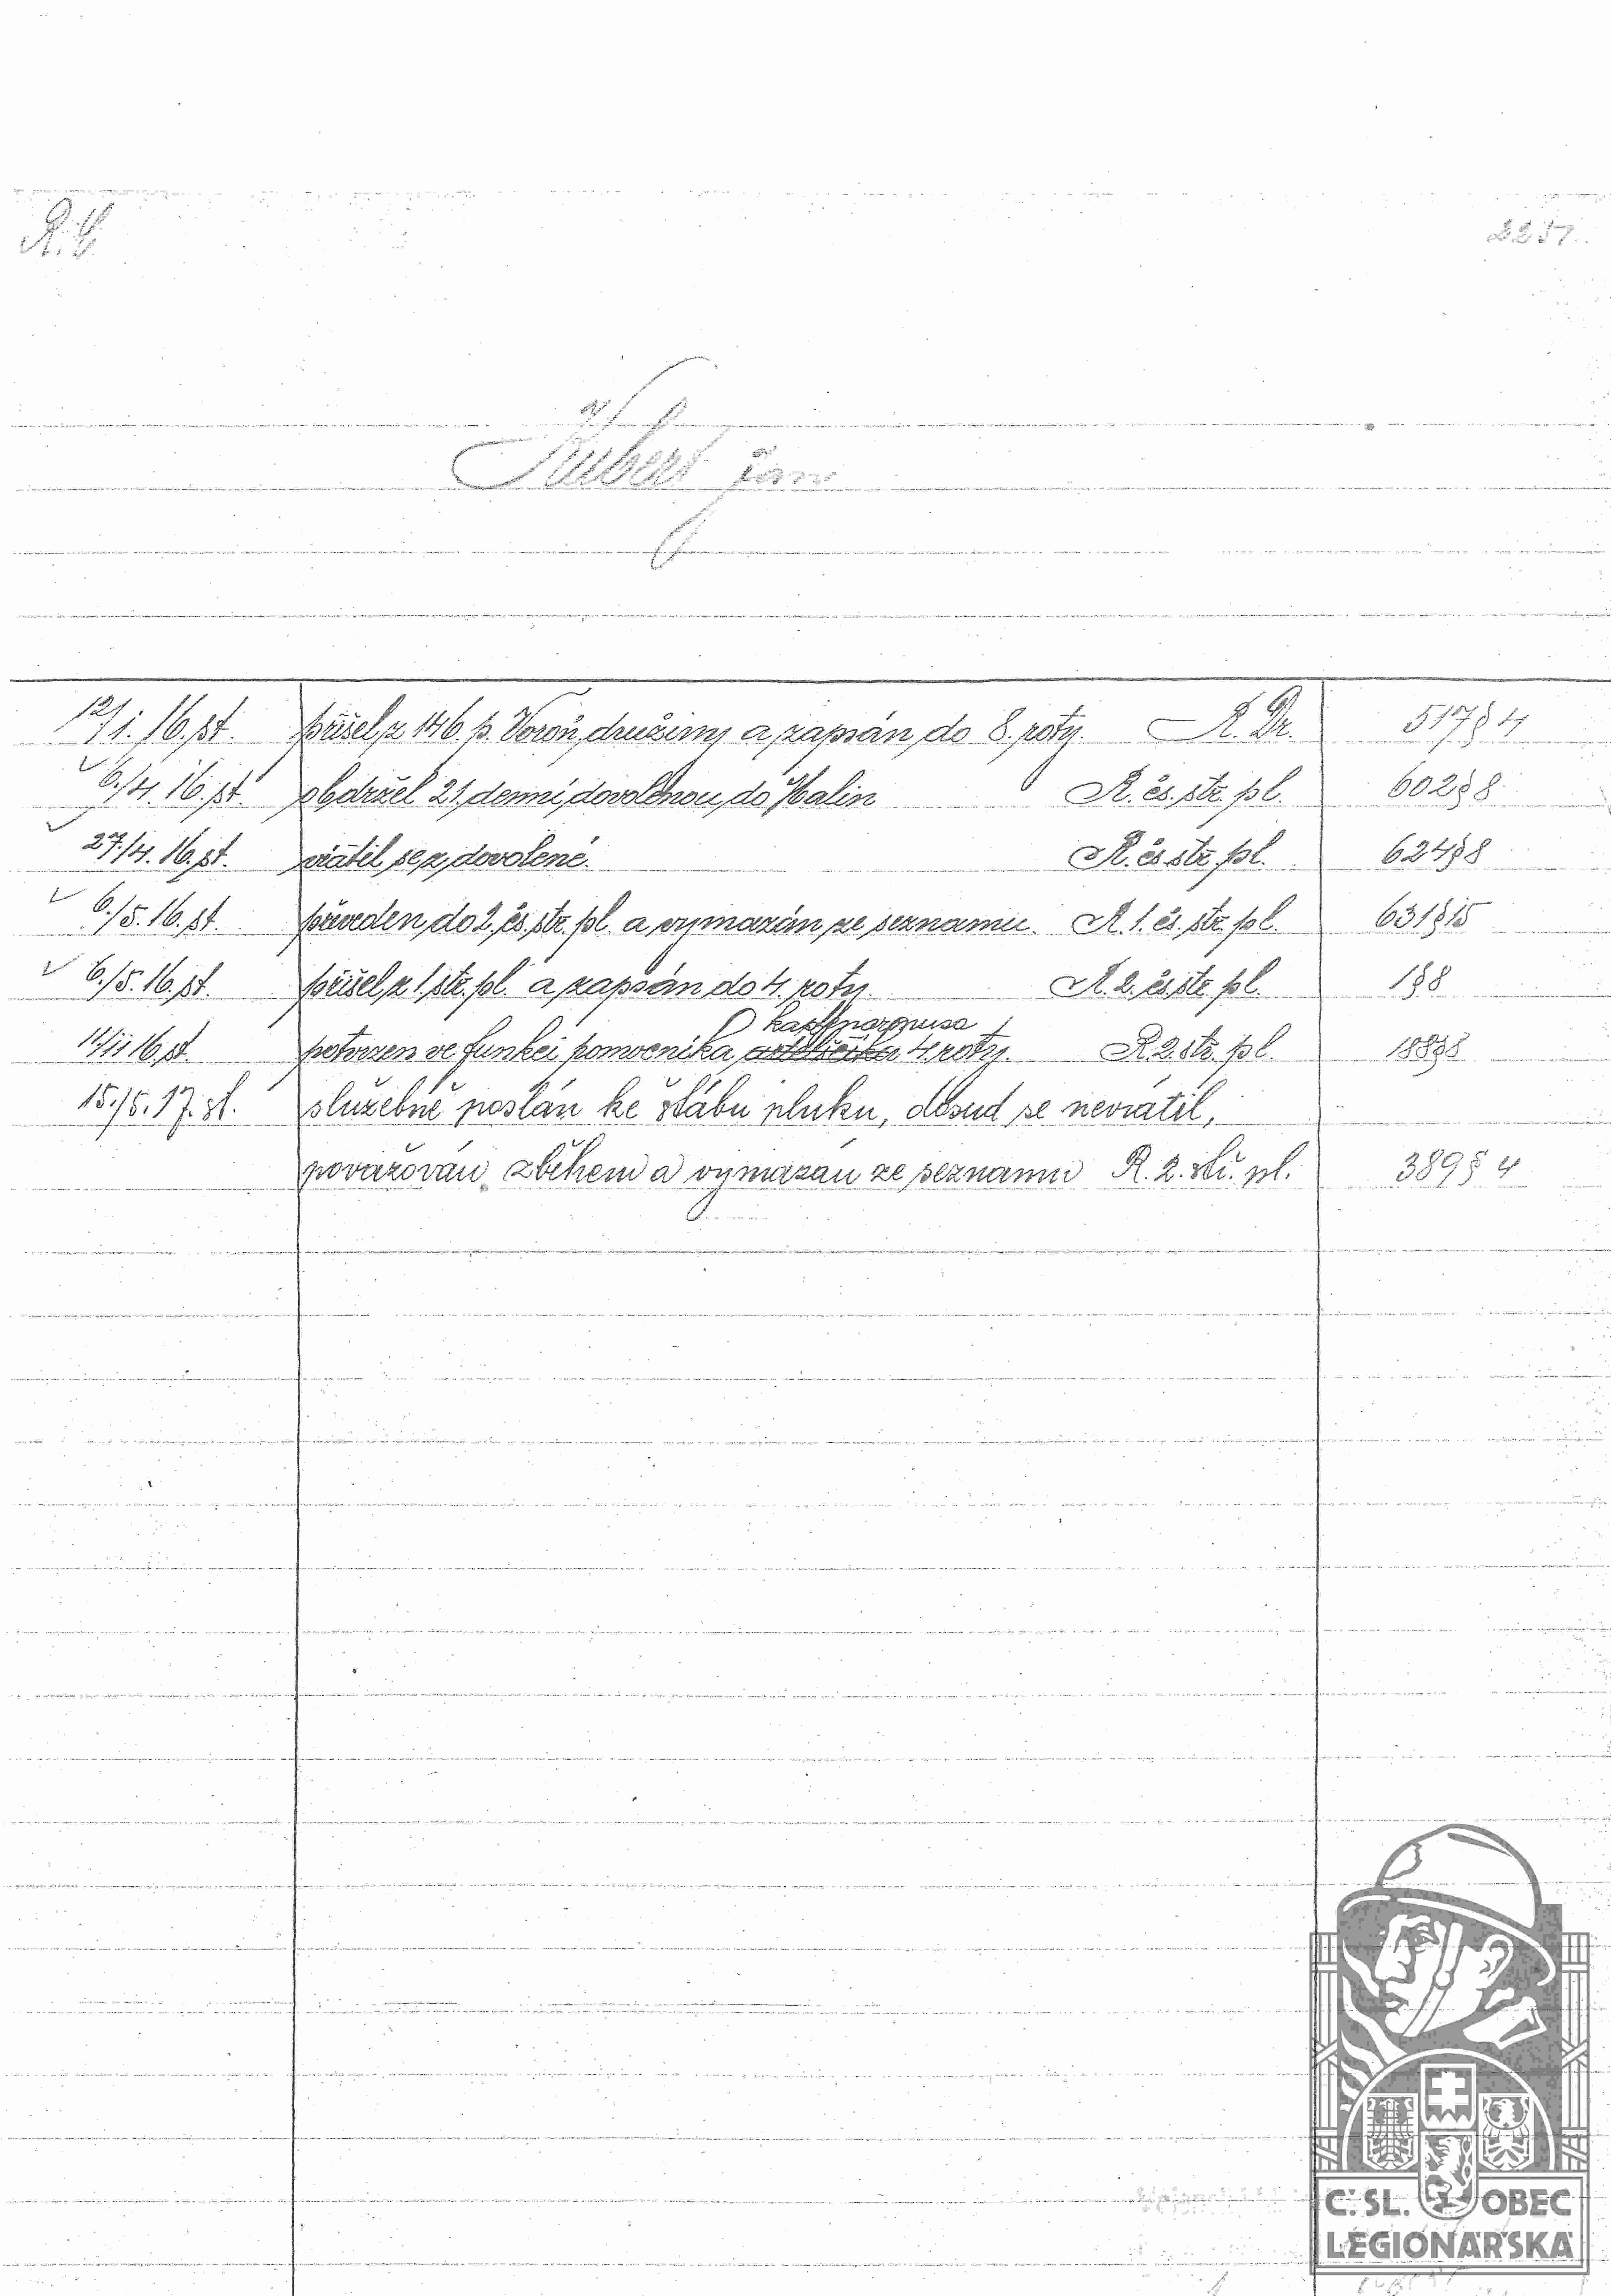 R.Č.
2257.
Kubeš Jan
12/1. 16. st. přišel z 146. p. Voroň. družiny a zapsán do 8. roty. R. Dr. 517 § 4
6./4. 16. st. obdržel 21 denní dovolenou do Halin R. čs. stř. pl. 602 § 8
27./4. 16. st. vrátil se z dovolené. R. čs. stř. pl. 624 § 8
6./5. 16. st. převeden do 2. čs. stř. pl. a vymazán ze seznamu. R. 1. čs. stř. pl. 631 § 15
6./5. 16. st. přišel z 1. stř. pl. a zapsán do 4. roty. R. 2. čs. stř. pl. 1 § 8
kaptenarmusa
11/11 16. st. potvrzen ve funkci pomocníka 4. roty. R. 2. stř. pl. 188 § 8
15./5. 17. st. služebně poslán ke štábu pluku, dosud se nevrátil,
považován zběhem a vymazán ze seznamu R. 2. stř. pl. 389 § 4
Č. SL. OBEC
LEGIONÁŘSKÁ